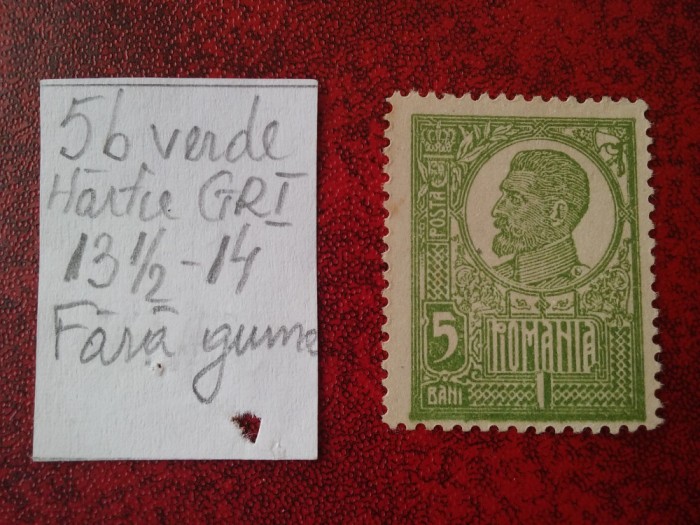 5b verde
Hârtie GRI
13 1/2 - 14
Fără guma
POSTA
5
BANI
ROMANIA